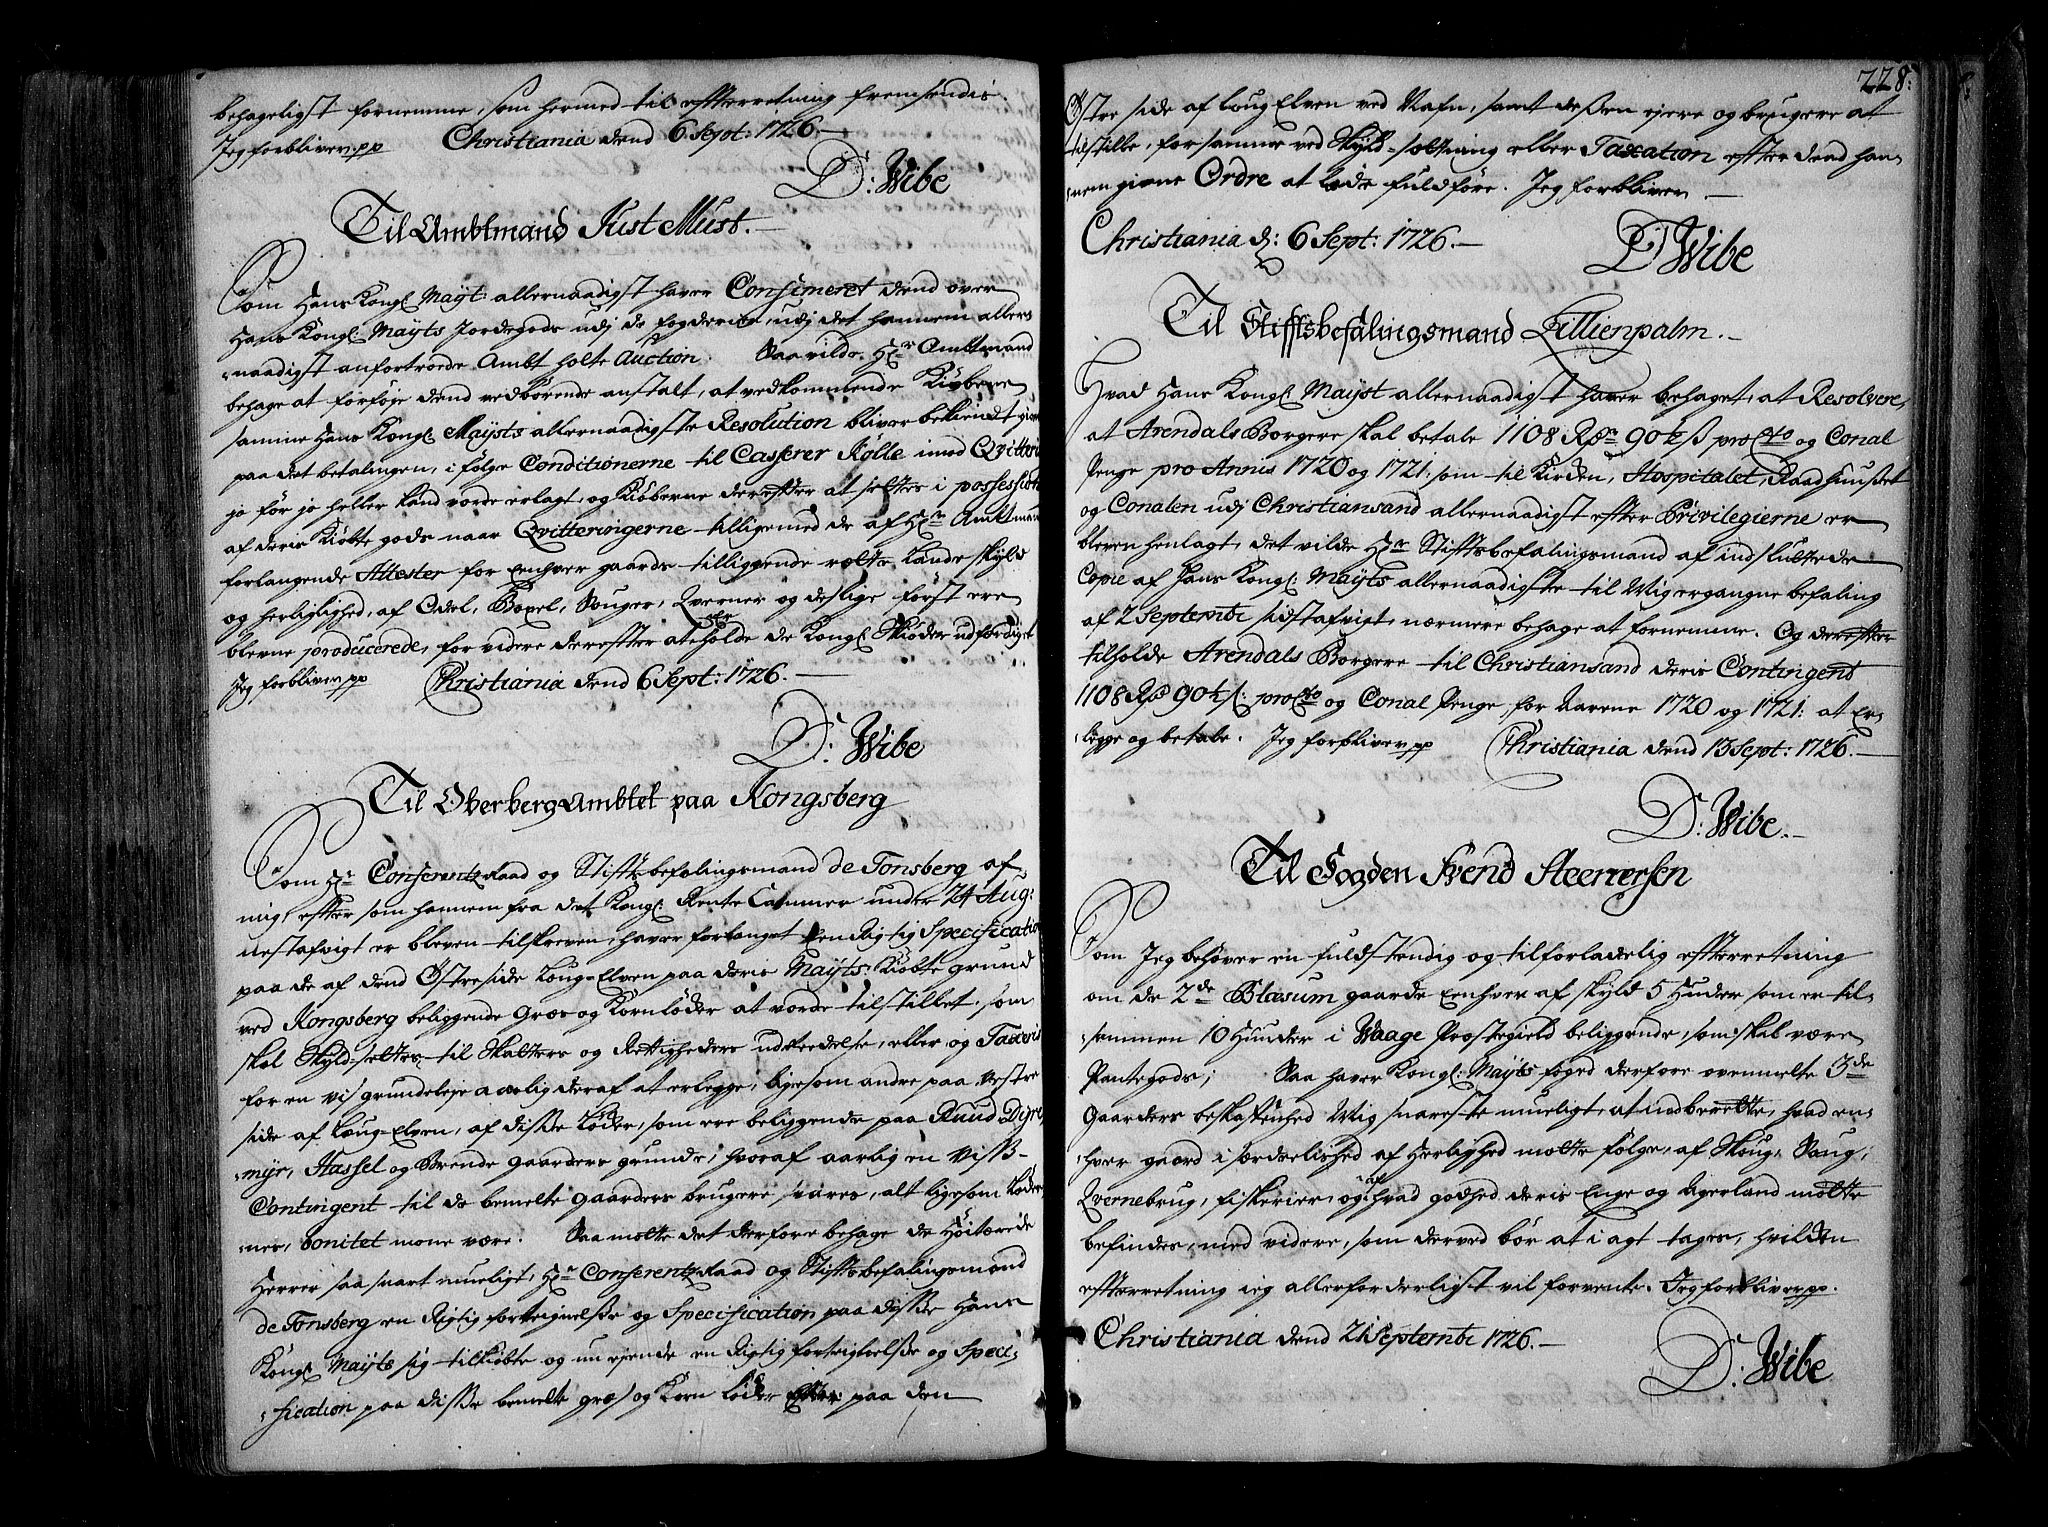 behageligst fornemme, som hermed til effterretning fremsendis.
Jeg forbliver pp Christiania dend 6 Sept: 1726.
D: Wibe
Til Ambtmand Just Must.
Som Hans Kongl. Mayt: allernaadigst haver Confimeret dend over
Hans Kongl. Mayts Jordegods udj de fogderier, udj det hannem aller-
naadigst anfortroede Ambt holte Auction. Saa vilde Hr Ambtmand
behage at forføje dend vedbørende anstalt, at vedkommende Kiøbere
samme Hans Kongl. Mayts allernaadigste Resolution bliver bekiendt giort
paa det betalingen, i følge Conditionerne til Casserer Kølle imod Qvittering
jo før jo heller kand vorde erlagt, og Kiøberne dereffter at settes i possession
af deris Kiøbte gods naar Qvitteringerne tilligemed de af Hr Ambtmand
forlangende Attester for Eenhver gaards tilliggende rette Landskyld
og herligighed, af Odel, Boxel, Sauger, Qverner og deslige først ere
blevne producerede, for videre dereffter at holde de Kongl. Skiøder udferdiget
Jeg forbliver pp Christiania dend 6 Sept: 1726.
D: Wibe
Til OberbergAmbtet paa Kongsberg
Som Hr Conferentz Raad og Stifftsbefalingsmand de Tonsberg af
mig, effter som hannem fra det Kongl. Rente Cammer under 24 Aug:
nestafvigt er bleven tilskreven, haver forlanget Een Rigtig Specification
paa de af dend Østre side Loug-Elven paa deris Mayts: Kiøbte grund
ved Kongsberg beliggende Græs og Kornløder at vorde tilstillet, som
skal Skyld-settes til Skatters og Rettigheders udreedelse, eller og Taxeris
for en vis grundeleje aarlig deraf at erlegge, ligesom andre paa Vestre
side af Loug-Elven, af disse Løder, som ere beliggende paa Ruud Dyre
-myr, Hassel og Brende gaarders grunde, hvoraf aarlig en Viss-
Contingent til de bemelte gaarders brugere svares, alt ligesom Løder
-nes bonitet mone være. Saa motte det derfore behage de Høitærede
Herrer saa snart mueligt, Hr Conferentz Raad og Stifftsbefalingsmand
de Tonsberg en Rigtig fortegnelsse og Specification paa disse Hans
Kongl. Mayts sig tilkiøbte og nu ejende en Rigtig fortegnelsse og Speci-
-fication paa disse bemelte græs og Korn Løder paa den
228.
Østre side af Loug Elven ved Nafn, samt dessen ejere og brugere at
tilstille, for samme ved Skyld-setning eller Taxation effter dend han-
-nem givne Ordre at lade fuldføre. Jeg forbliver
Christiania d: 6 Sept: 1726.
D Wibe
Til Stifftsbefalingsmand Lillienpalm.
Hvad Hans Kongl. Mayst allernaadigst haver behaget, at Resolvere,
at Arendals Borgere skal betale 1108 Rdr 90½ ß pro Cto og Conal
Penge pro Annis 1720 og 1721: som til Kirken, Hospitalet, Raadhuusset
og Conalen udj Christiansand allernaadigst effter Privilegierne er
bleven henlagt, det vilde Hr Stifftsbefalingsmand af indsluttede
Copie af Hans Kongl: Mayts allernaadigste til Mig ergangne befaling
af 2 Septembr sidstafvigt, nærmere behage at fornemme. Og dereffter
tilholde Arendals Borgere til Christiansand deris Contingent
1108 Rd 90½ ß: pro Cto og Conal Penge for Aarene 1720 og 1721: at Er-
-legge og betale. Jeg forbliver pp Christiania dend 13 Sept: 1726.
D: Wibe.
Til Fogden Svend
Som Jeg behøver en fuldstendig og tilforladelig effterretning
om de 2de Blæsum gaarde Eenhver af skyld 5 Huder som er til-
-sammen 10 Huuder i Waage Prostegield beliggende, som skal være
Pantegods; Saa haver Kongl: Mayts foged derfore ovenmelte 2de
Gaarders beskaffenhed Mig snareste mueligt, at indberette, hvad en-
-hver gaard i særdeelished af Herlighed motte følge, af Skoug, Saug,
Qvernebrug, fiskerier, og af hvad godhed deris Enge og Agerland motte
befindes, med videre, som derved bør at i agt tages, hvilken
effterretning jeg allerforderligst vil forvente. Jeg forbliver pp.
Christiania dend 21 Septembr 1726.
D: Wibe